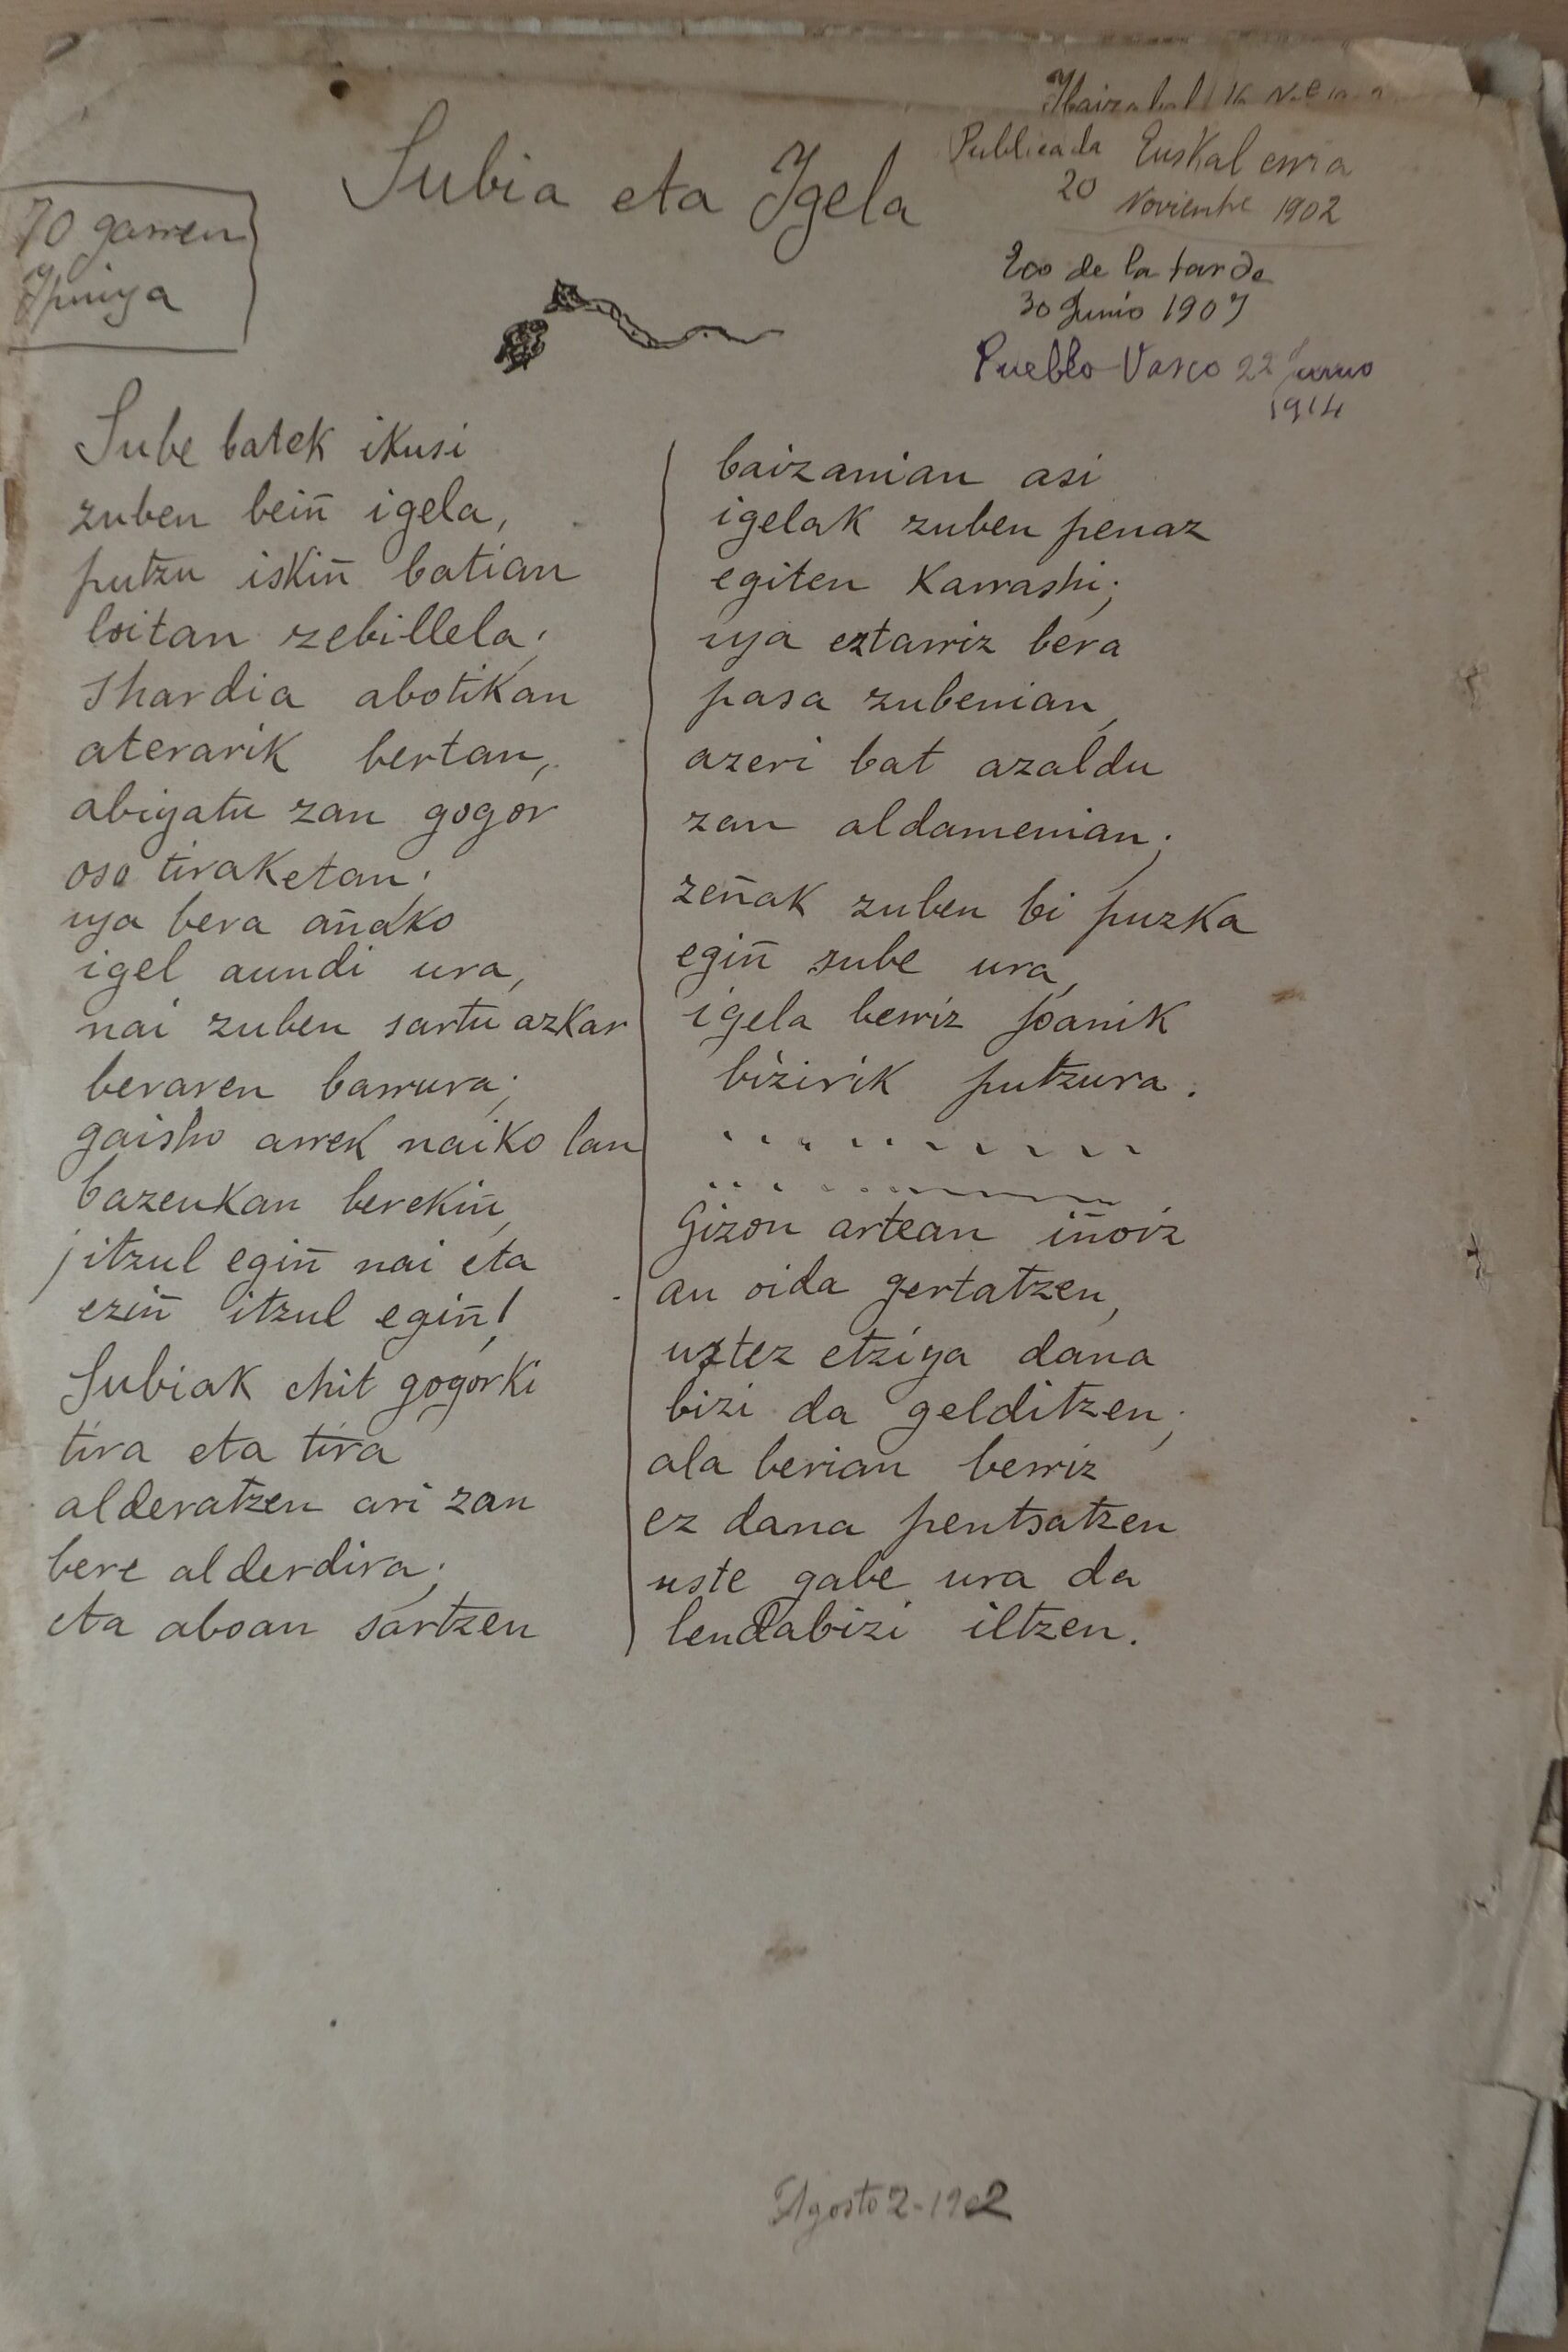 Ibaizabal 16
Publicada Euskal erria
20 Noviembre 1902
Subia eta Igela
70 garren
Ipuiya
200 de la tarde
30 Junio 1907
Pueblo Vasco 22 Junio
1914
Sube batek ikusi
zuben beiñ igela,
putzu iskiñ batian
loitan zebillela;
shardia abotikan
aterarik bertan,
abiyatu zan gogor
oso tiraketan;
uya bera añako
igel aundi ura,
nai zuben sartu azkar
beraren barrura;
gaisho arrek naiko lan
bazeukan berekiñ,
itzul egiñ nai eta
eziñ itzul egiñ!
Subiak chit gogorki
tira eta tira
alderatzen ari zan
bere alderdira;
eta aboan sartzen
baizanian asi
igelak zuben penaz
egiten karrashi;
uya eztarriz bera
pasa zubenian,
azeri bat azaldu
zan aldamenian;
zeñak zuben bi puzka
egiñ sube ura,
igela berriz joanik
bizirik putzura.
Gizon artean iñoiz
au oida gertatzen,
uztez etziya dana
bizi da gelditzen;
ala berian berriz
ez dana pentsatzen
uste gabe ura da
lendabizi iltzen.
Agosto 2-1902